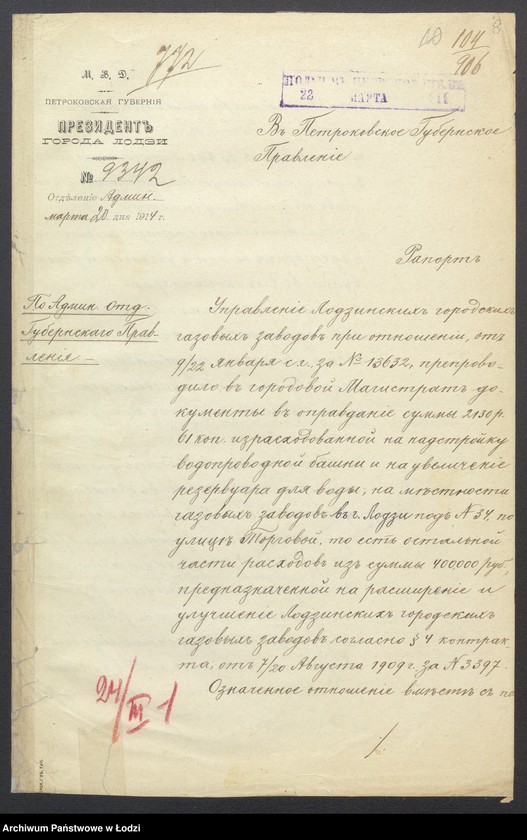 772
104
906
М. В. Д.
ПЕТРОКОВСКАЯ ГУБЕРНІЯ
ПРЕЗИДЕНТЪ
ГОРОДА ЛОДЗИ
№ 9342
Отдѣленіе Админ.
марта 20 дня 1914 г.
22 МАРТА 14
Въ Петроковское Губернское
Правленіе
Рапортъ
По Админ. Отд.
Губернскаго Прав-
ленія —
Управленіе Лодзинскихъ городскихъ
газовыхъ заводовъ при отношеніи, отъ
9/22 января с.г., за № 13632, препрово-
дило въ городовой Магистратъ до-
кументы въ оправданіе суммы 2130 р.
61 коп. израсходованной на надстройку
водопроводной башни и на увеличеніе
резервуара для воды, на мѣстности
газовыхъ заводовъ въ г. Лодзи подъ № 34, по
улицѣ Торговой, то есть остальной
части расходовъ изъ суммы 400000 руб.,
предназначенной на расширеніе и
улучшеніе Лодзинскихъ городскихъ
газовыхъ заводовъ согласно § 4 контрак-
та, отъ 7/20 Августа 1909 г. за № 3397.
Означенное отношеніе вмѣстѣ съ по
24/III 1
Archiwum Państwowe w Łodzi